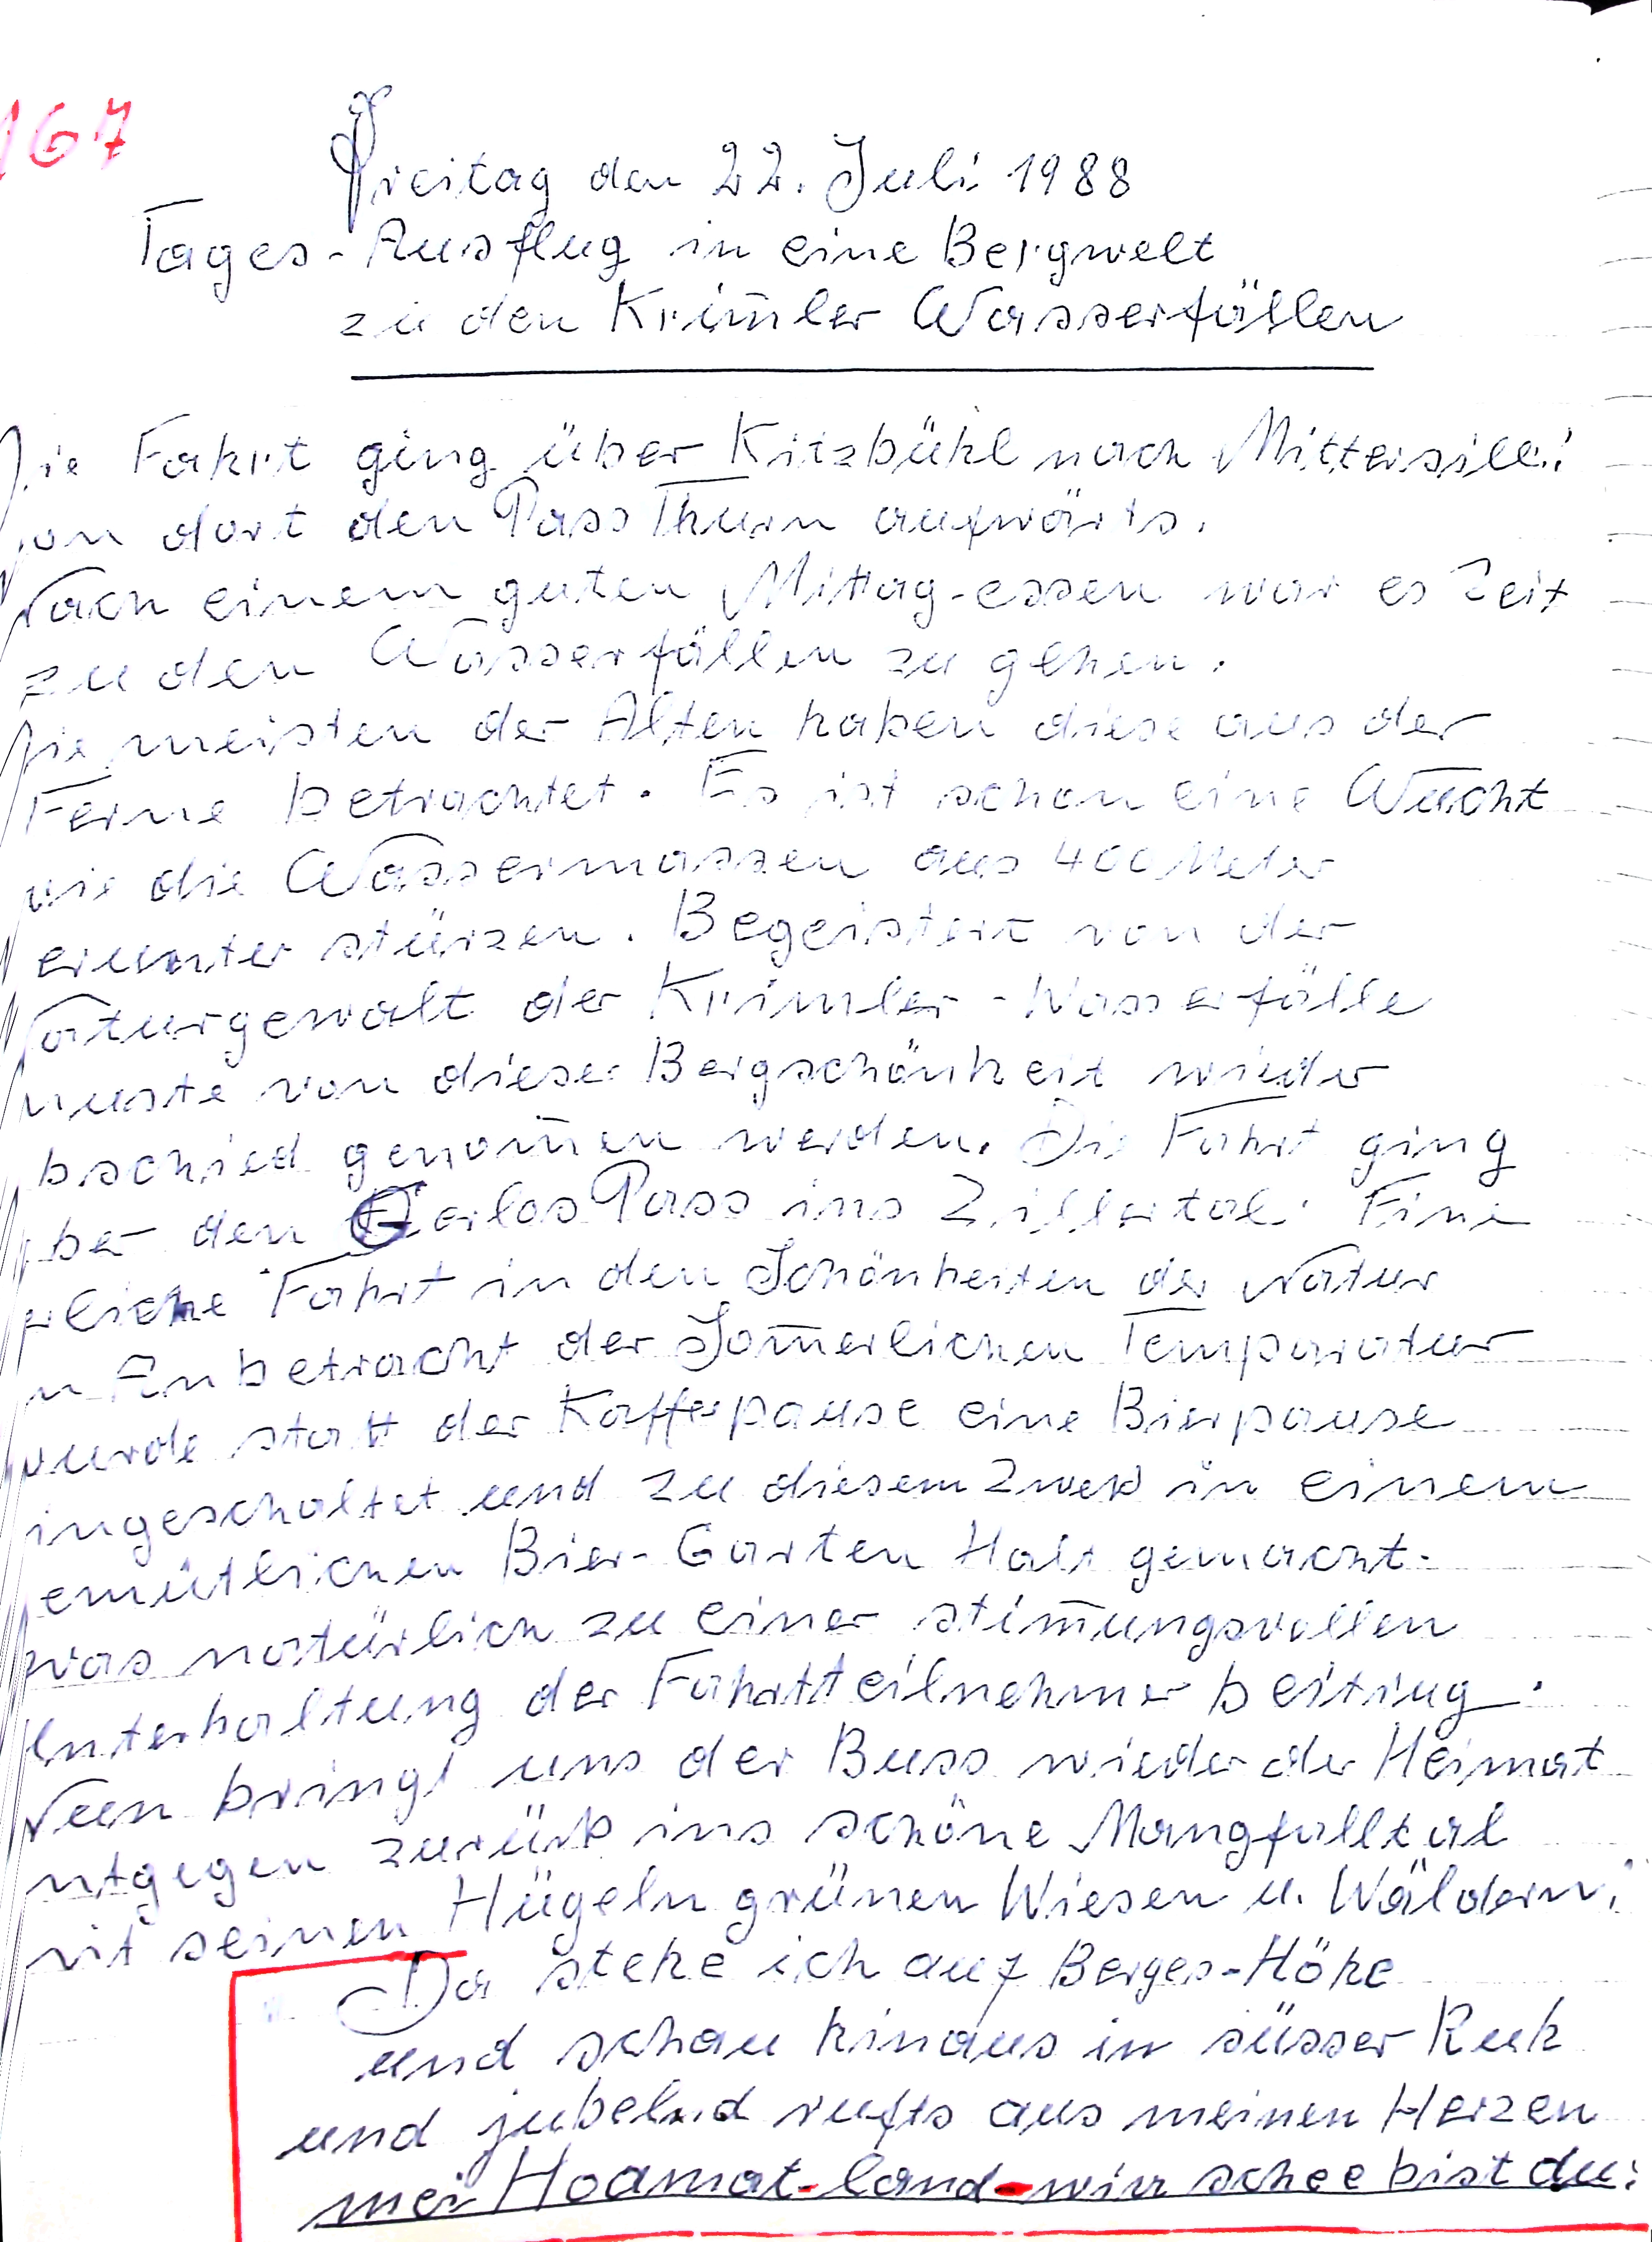 167
Freitag den 22. Juli 1988
Tages-Ausflug in eine Bergwelt
zu den Krim̄ler Wasserfällen
Die Fahrt ging über Kitzbühl nach Mittersill!
von dort den Pass Thurn aufwärts.
Nach einem guten Mittag-essen war es Zeit
zu den Wasserfällen zu gehen.
Die meisten der Alten haben diese aus der
Ferne betrachtet. Es ist schon eine Wucht
wie die Wassermassen aus 400 Meter
erunter stürzen. Begeistert von der
Naturgewalt der Krimler-Wasserfälle
muste von dieser Bergschönheit wieder
bschied genom̄en werden. Die Fahrt ging
ber den Gerlos Pass ins Zillertal. Eine
rliche Fahrt in den Schönheiten der Natur
n Anbetracht der Som̄erlichen Temparatur
wurde statt der Kaffepause eine Bierpause
ingeschaltet und zu diesem Zwek in einem
emütlichen Bier-Garten Halt gemacht.
was natürlich zu einer stim̄ungsvollen
Unterhaltung der Fahrtteilnehmer beitrug.
Nun bringt uns der Buss wieder der Heimat
ntgegen zurük ins schöne Mangfalltal
mit seinen Hügeln grünen Wiesen u. Wäldern.
Da stehe ich auf Berges-Höhe
und schau hinaus in süsser Ruh
und jubelnd rufts aus meinen Herzen
mei Hoamat-land-wia schee bist du: